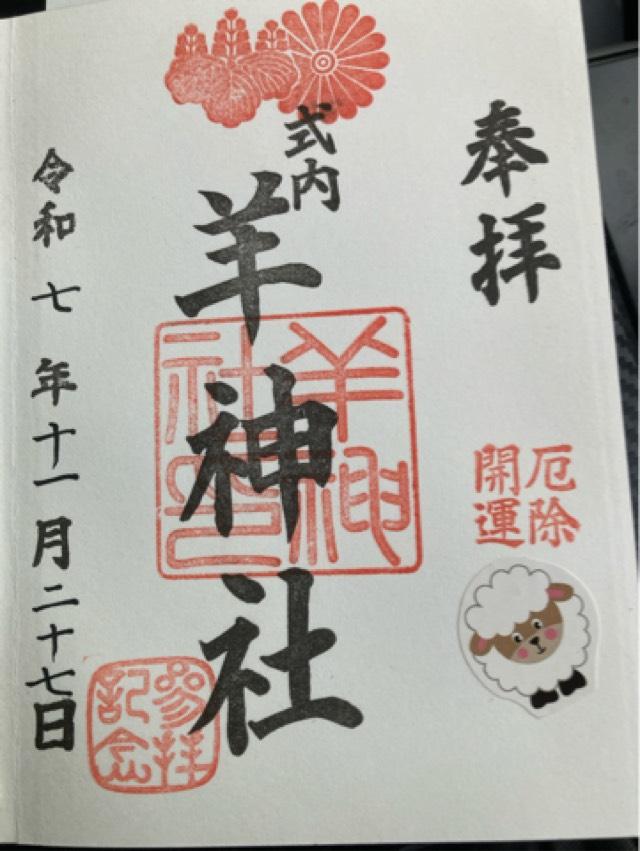 奉拝
厄除
開運
式内
羊神社
羊神
社印
参拝
記念
令和七年十一月二十七日